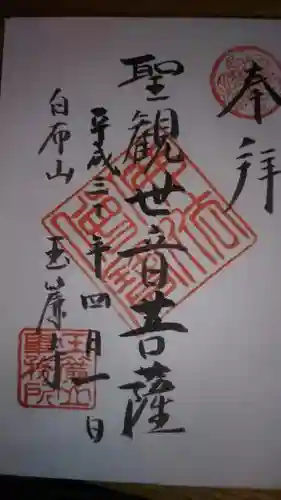 奉拝
聖観世音菩薩
平成三十年四月一日
白布山 玉崖寺